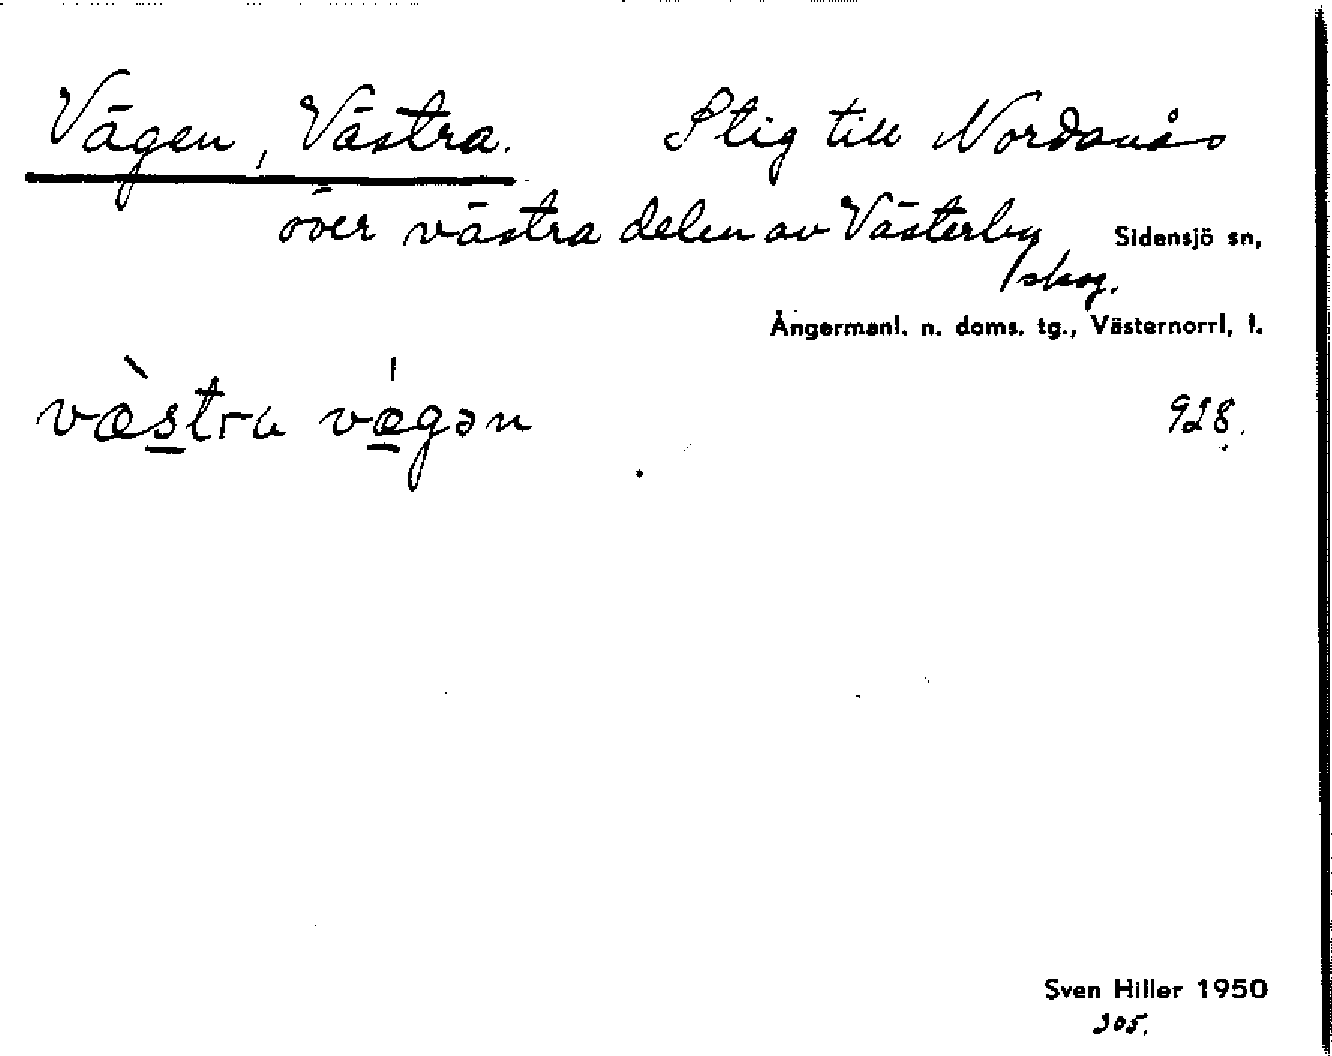 Vägen, Västra. Stig till Nordanås
över västra delen av Västerby
skog.
Sidensjö sn,
Ångermanl. n. doms. tg., Västernorrl. l.
væ̀stra vǽgən
928.
Sven Hiller 1950
305.